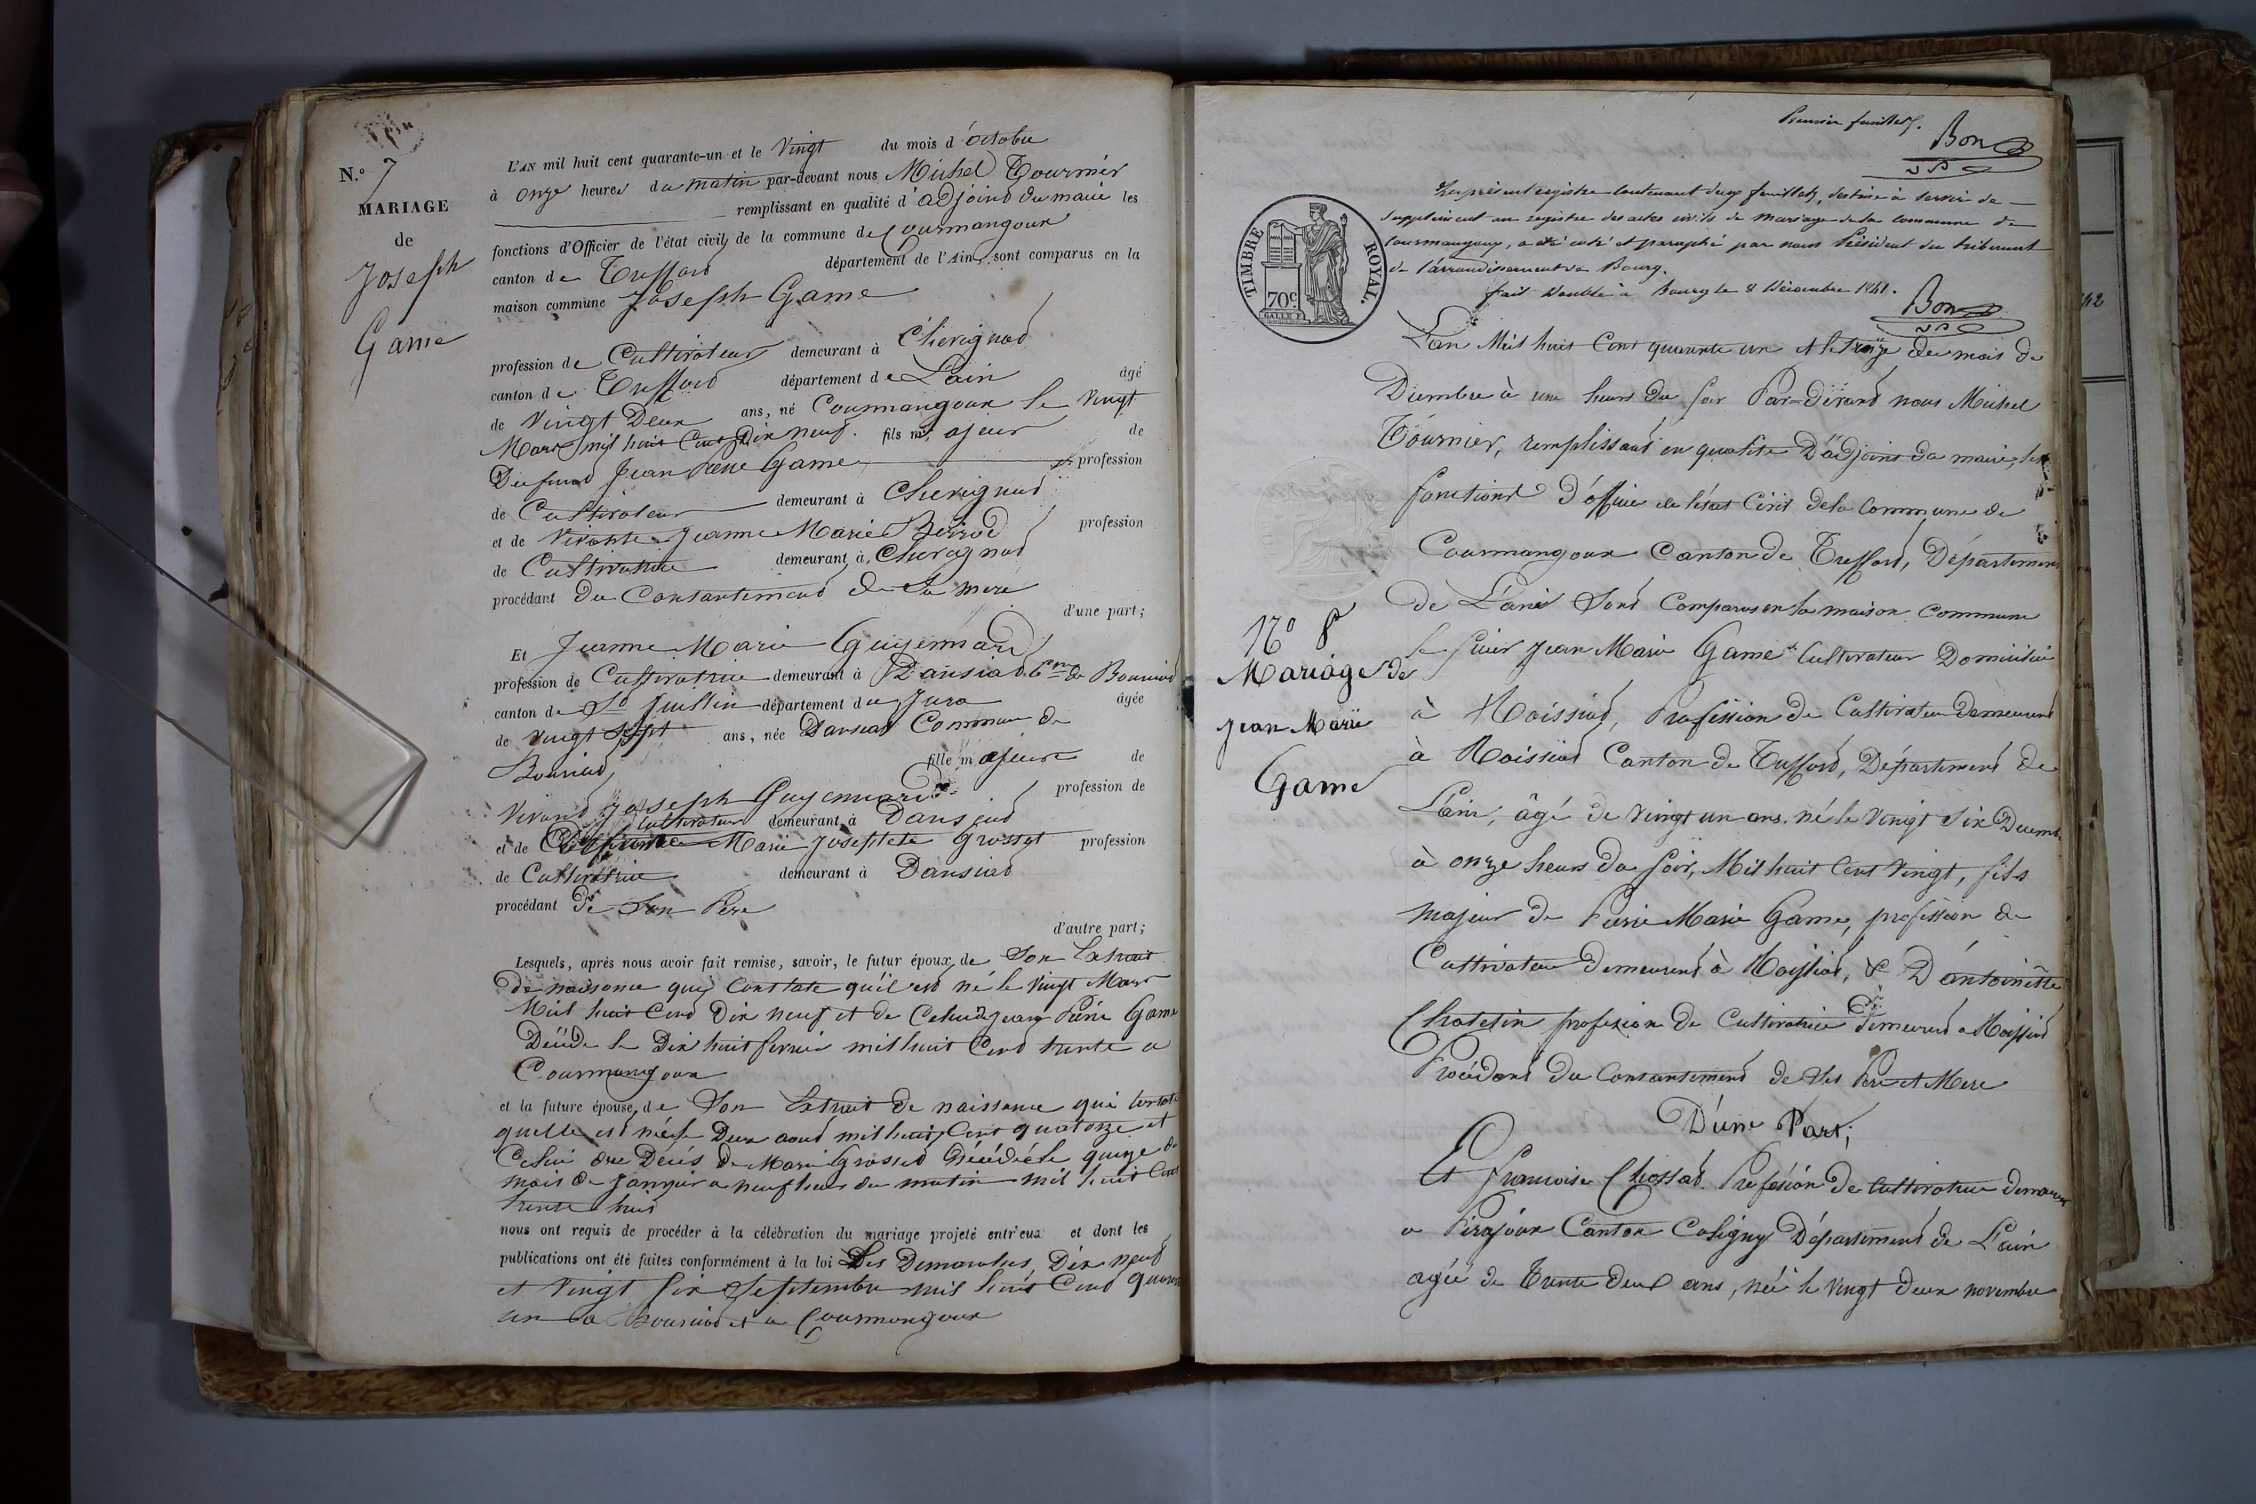 N.° 7
MARIAGE
de
Joseph
Game
L'AN mil huit cent quarante-un et le vingt du mois d'octobre
à onze heures du matin par-devant nous Michel Tournier
remplissant en qualité d'adjoint du maire les
fonctions d'Officier de l'état civil de la commune de Courmangoux
canton de Trefford département de l'Ain, sont comparus en la
maison commune Joseph Game
profession de Cultivateur demeurant à Chevignad
canton de Trefford département de Lain âgé
de vingt Deux ans, né Courmangoux le vingt
Mars mil huit Cent Dix neuf. fils majeur de
Deffund Jean Piere Game profession
de Cultivateur demeurant à Chevignad
et de vivante Jeanne Marie profession
de Cultivatrice demeurant à Chevignad
procédant du Consantement de sa mere
d'une part;
Et Jeanne Marie Guyennard
profession de Cultivatrice demeurant à Dansiad
canton de St Jullin département du Jura âgée
de vingt sept ans, née Dansiad Commune de
fille majeure de
vivand Joseph Guyennard profession de
Cultivateur demeurant à Dansiad
et de Marie Josephete Grosset profession
de Cultivatrice demeurant à Dansiad
procédant De Son Pere
d'autre part;
Lesquels, après nous avoir fait remise, savoir, le futur époux, de Son Extrait
De naissance qui Constate quil est né le vingt Mars
Mil huit Cend Dix neuf et de Celui de Jean Piere Game
Décéde le Dix huit fevrie mil huit Cend trente a
Courmangoux
et la future épouse, de Son Extrait de naissance qui
quelle est née le Deux aoud mil huit Cent quatorze et
Celui de Décés de Marie Grosset Décédé le quinze du
mois de Janvier a neuf heurs du matin mil huit Cent
trente huit
nous ont requis de procéder à la célébration du mariage projeté entr'eux et dont les
publications ont été faites conformément à la loi Les Dimanches Dix neuf
et vingt six Septembre mil huit Cend quarante
un a et a Courmangoux
Premier feuillet.
Bon
Le présent registre contenant deux feuillets, destiné à servir de
supplément au registre des actes civils de mariage de la commune de
Courmangoux, a été coté et paraphé par nous Président du tribunal
de l'arrondissement de Bourg.
fait double à Bourg le 8 Décembre 1841.
Bon
TIMBRE ROYAL.
70c.
L'an Mil huit Cent quarante un et le treize du mois de
Diembre à une heurs du soir Par-devand nous Michel
Tournier, remplissant en qualite D'adjoint du maire, les
fonctiond d'officie de létat Civil de la Commune de
Courmangoux Canton de Trefford, Départemend
de Lain Sond Comparus en la maison Commune
le sieur Jean Marie Game Cultivateur Domicilié
à Roissiad, Profession de Cultivateur demeurand
à Roissiad Canton de Trefford, Départemend de
Lain, âgé de vingt un ans. né le vingt six Decemb
à onze heurs du soir, Mil huit Cent vingt, fils
majeur de Pierre Marie Game, profession de
Cultivateur Demeurend à Roissiad, & D'antoinette
Chatelin profession de Cultivatrice Demeurend a Roissiad
Procédand du Consantemend de ses Pere et Mere
D'une Part;
Et francoise Chossad. Profesion de Cultivatrice demeurand
a Pirajoux Canton Coligny Départemend de L'ain
agée de Trente deux ans, née le vingt deux novembre
N° 8
Mariage de
Jean Marie
Game